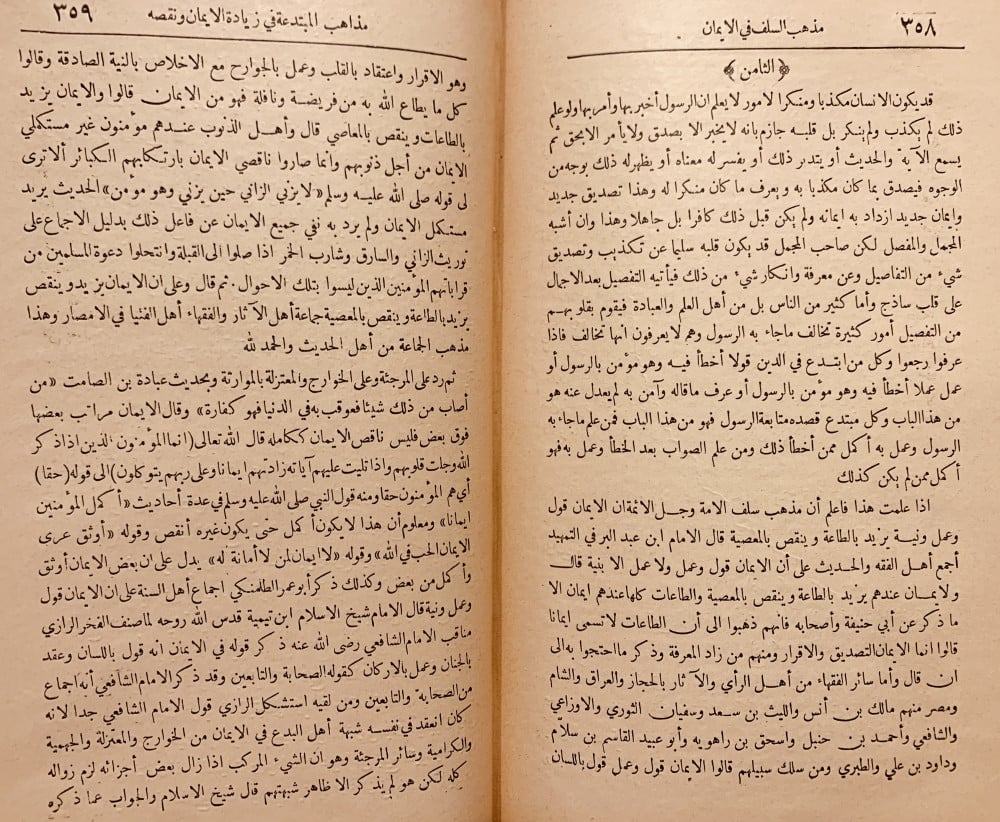 ٣٥٨ مذهب السلف في الايمان
﴿ الثامن ﴾
قد يكون الانسان مكذبا ومنكرا لامور لا يعلم ان الرسول أخبر بها وأمر بها ولو علم
ذلك لم يكذب ولم ينكر بل قلبه جازم بانه لا يخبر الا بصدق ولا يأمر الا بحق ثم
يسمع الآية والحديث أو يتدبر ذلك أو يفسر له معناه أو يظهر له ذلك بوجه من
الوجوه فيصدق بما كان مكذبا به ويعرف ما كان منكرا له وهذا تصديق جديد
وايمان جديد ازداد به ايمانه ولم يكن قبل ذلك كافرا بل جاهلا وهذا وان أشبه
المجمل والمفصل لكن صاحب المجمل قد يكون قلبه سليما عن تكذيب وتصديق
شيء من التفاصيل وعن معرفة وانكار شيء من ذلك فيأتيه التفصيل بعد الاجمال
على قلب ساذج وأما كثير من الناس بل من أهل العلم والعبادة فيقوم بقلوبهم
من التفصيل أمور كثيرة تخالف ماجاء به الرسول وهم لا يعرفون انها تخالف فاذا
عرفوا رجعوا وكل من ابتدع في الدين قولا أخطأ فيه وهو مؤمن بالرسول أو
عمل عملا أخطأ فيه وهو مؤمن بالرسول أو عرف ماقاله وآمن به لم يعدل عنه هو
من هذا الباب وكل مبتدع قصده متابعة الرسول فهو من هذا الباب فمن علم ماجاء به
الرسول وعمل به أكمل ممن أخطأ ذلك ومن علم الصواب بعد الخطأ وعمل به فهو
أكمل ممن لم يكن كذلك
اذا علمت هذا فاعلم أن مذهب سلف الامة وجل الائمة ان الايمان قول
وعمل ونية يزيد بالطاعة وينقص بالمعصية قال الامام ابن عبد البر في التمهيد
أجمع أهل الفقه والحديث على أن الايمان قول وعمل ولا عمل الا بنية قال
ولايمان عندهم يزيد بالطاعة وينقص بالمعصية والطاعات كلها عندهم ايمان الا
ما ذكر عن أبي حنيفة وأصحابه فانهم ذهبوا الى أن الطاعات لا تسمى ايمانا
قالوا انما الايمان التصديق والاقرار ومنهم من زاد المعرفة وذكر ما احتجوا به الى
ان قال وأما سائر الفقهاء من أهل الرأي والآثار بالحجاز والعراق والشام
ومصر منهم مالك بن أنس والليث بن سعد وسفيان الثوري والاوزاعي
والشافعي وأحمد بن حنبل واسحق بن راهويه وأبو عبيد القاسم بن سلام
وداود بن علي والطبري ومن سلك سبيلهم قالوا الايمان قول وعمل قول باللسان
مذاهب المبتدعة في زيادة الايمان ونقصه ٣٥٩
وهو الاقرار واعتقاد بالقلب وعمل بالجوارح مع الاخلاص بالنية الصادقة وقالوا
كل ما يطاع الله به من فريضة ونافلة فهو من الايمان قالوا والايمان يزيد
بالطاعات وينقص بالمعاصي قال وأهل الذنوب عندهم مؤمنون غير مستكملي
الايمان من أجل ذنوبهم وانما صاروا ناقصي الايمان بارتكابهم الكبائر ألا ترى
لى قوله صلى الله عليه وسلم «لا يزني الزاني حين يزني وهو مؤمن» الحديث يريد
مستكمل الايمان ولم يرد به نفي جميع الايمان عن فاعل ذلك بدليل الاجماع على
توريث الزاني والسارق وشارب الخمر اذا صلوا الى القبلة وانتحلوا دعوة المسلمين من
قراباتهم المؤمنين الذين ليسوا بتلك الاحوال. ثم قال وعلى ان الايمان يزيد وينقص
يزيد بالطاعة وينقص بالمعصية جماعة أهل الآثار والفقهاء أهل الفتيا في الامصار وهذا
مذهب الجماعة من أهل الحديث والحمد لله
ثم رد على المرجئة وعلى الخوارج والمعتزلة بالموارثة وبحديث عبادة بن الصامت «من
أصاب من ذلك شيئا فعوقب به في الدنيا فهو كفارة» وقال الايمان مراتب بعضها
فوق بعض فليس ناقص الايمان ككامله قال الله تعالى (انما المؤمنون الذين اذا ذكر
الله وجلت قلوبهم واذا تليت عليهم آياته زادتهم ايمانا وعلى ربهم يتوكلون) الى قوله (حقا)
أي هم المؤمنون حقا ومنه قول النبي صلى الله عليه وسلم في عدة أحاديث «أكمل المؤمنين
ايمانا» ومعلوم أن هذا لا يكون أكمل حتى يكون غيره أنقص وقوله «أوثق عرى
الايمان الحب في الله» وقوله «لا ايمان لمن لا أمانة له» يدل على ان بعض الايمان أوثق
وأكمل من بعض وكذلك ذكر أبو عمر الطلمنكي اجماع أهل السنة على ان الايمان قول
وعمل ونية قال الامام شيخ الاسلام ابن تيمية قدس الله روحه لما صنف الفخر الرازي
مناقب الامام الشافعي رضى الله عنه ذكر قوله في الايمان انه قول باللسان وعقد
بالجنان وعمل بالاركان كقول الصحابة والتابعين وقد ذكر الامام الشافعي أنه اجماع
من الصحابة والتابعين ومن لقيه استشكل الرازي قول الامام الشافعي جدا لانه
كان انعقد في نفسه شبهة أهل البدع في الايمان من الخوارج والمعتزلة والجهمية
والكرامية وسائر المرجئة وهو ان الشيء المركب اذا زال بعض أجزائه لزم زواله
كله لكن هو لم يذكر الا ظاهر شبهتهم قال شيخ الاسلام والجواب عما ذكره